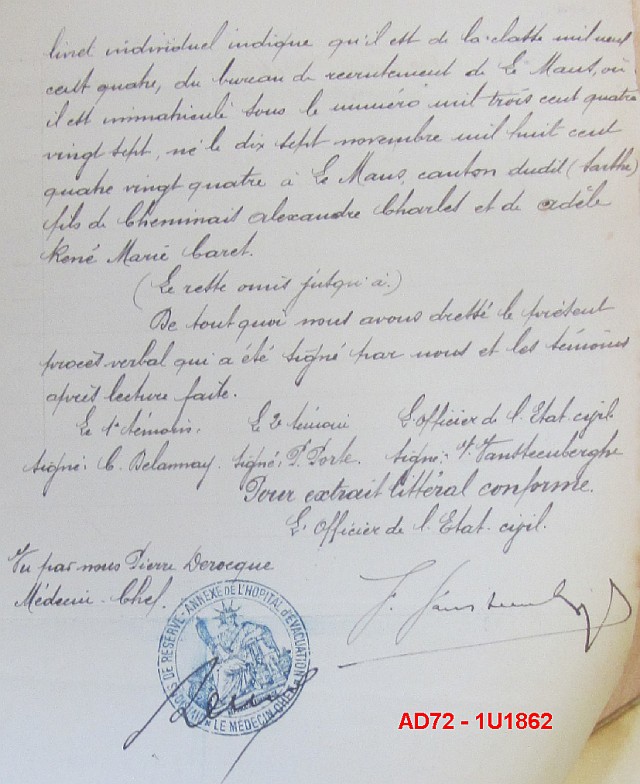 livret individuel indique qu'il est de la classe mil neuf
cent quatre, du bureau de recrutement de Le Mans, où
il est immatriculé sous le numéro mil trois cent quatre
vingt sept, né le dix sept novembre mil huit cent
quatre vingt quatre à Le Mans, canton dudit (Sarthe)
fils de Cheminais Alexandre Charles et de Adèle
René Marie Caret.
(Le reste omis jusqu'à.)
De tout quoi nous avons dressé le présent
procès verbal qui a été signé par nous et les témoins
après lecture faite.
Le 1er témoin. Le 2e témoin L'officier de l'Etat-civil
signé: C. Delannay. signé: P. Porte. signé: F. Vansteenberghe
Pour extrait littéral conforme.
L'Officier de l'Etat-civil.
Vu par nous Pierre Derocque
Médecin-Chef.
DE RESERVE - ANNEXE DE L'HOPITAL D'EVACUATION
LE MÉDECIN-CHEF
AD72 - 1U1862